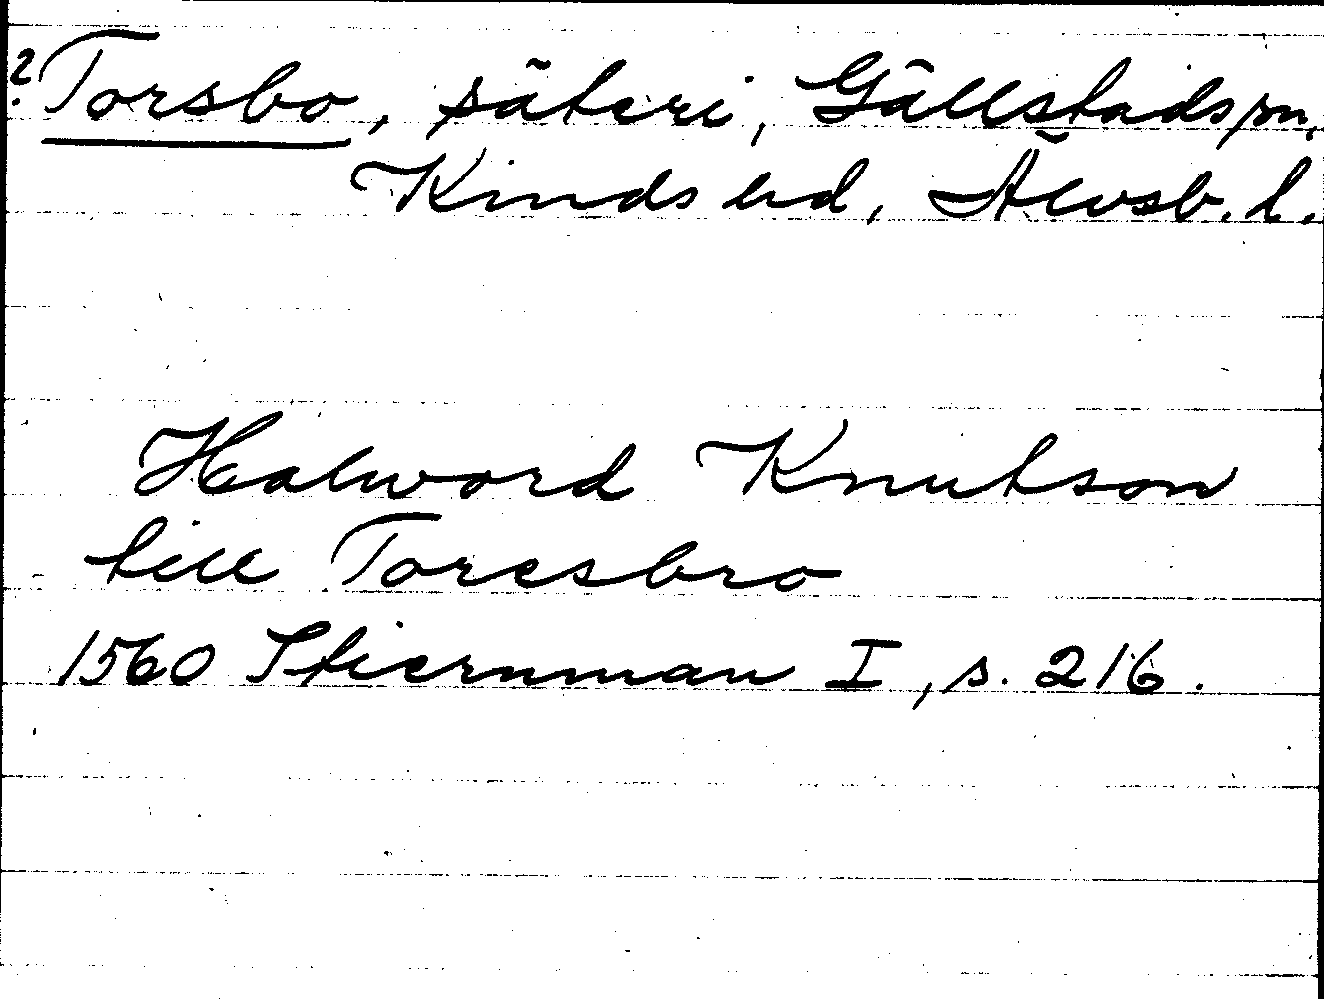 ? Torsbo, säteri, Gällstads sn,
Kinds hd, Älvsb. l.
Halword Knutson
till Toresbro
1560 Stiernman I, s. 216.